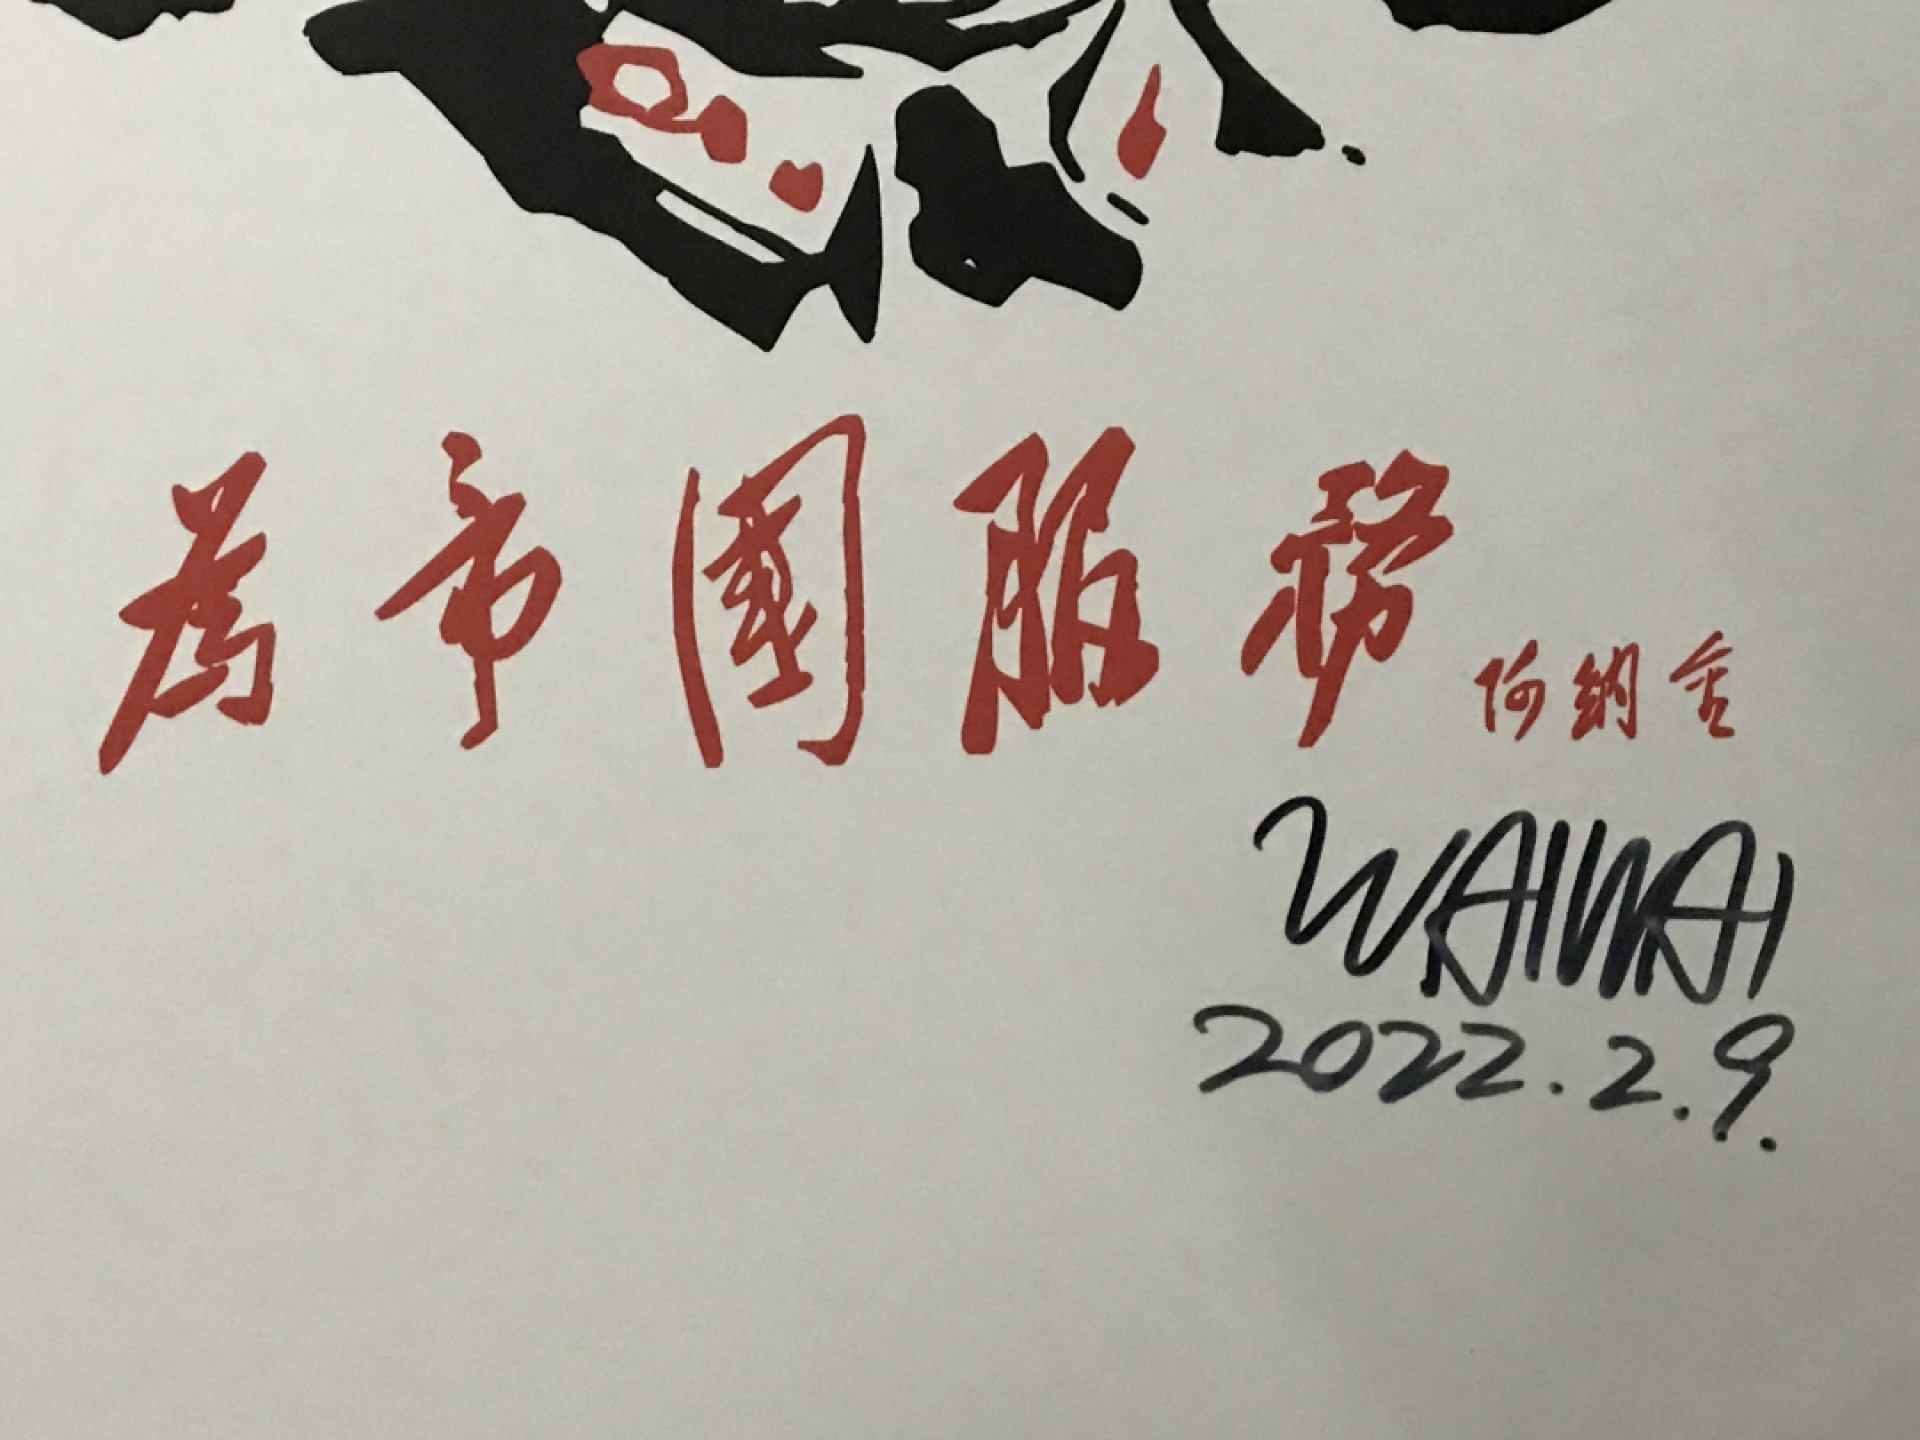 為帝國服務
阿納金
WAIWAI
2022.2.9.